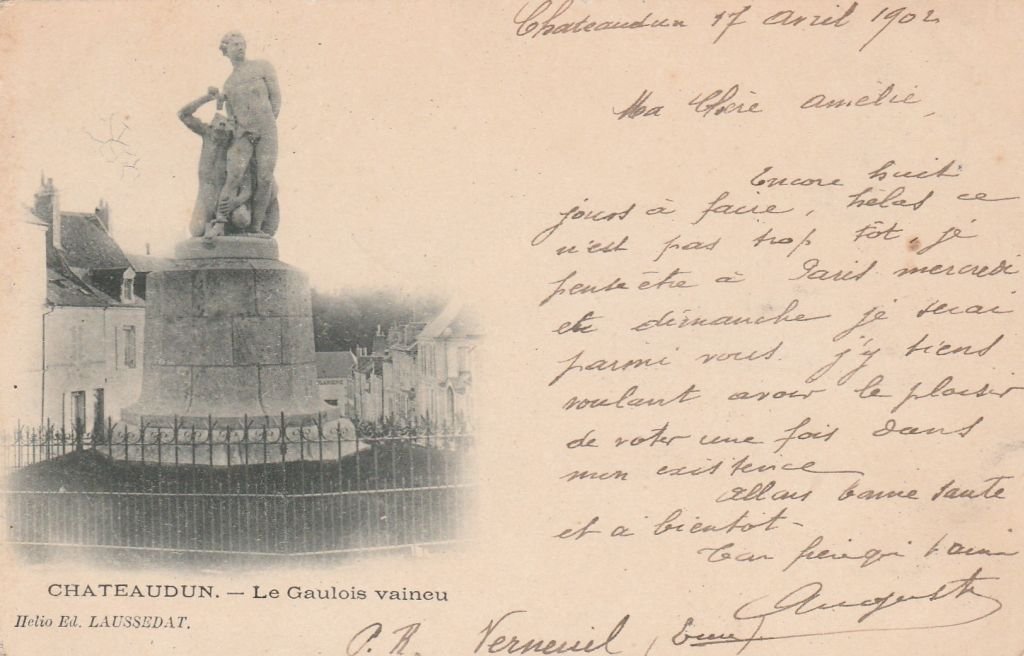 Chateaudun 17 Avril 1902
Ma Chère Amélie,
Encore huit
jours à faire, hélas ce
n'est pas trop tôt, je
pense être à Paris mercredi
et dimanche je serai
parmi vous. j'y tiens
voulant avoir le plaisir
de voter une fois dans
mon existence
Allons bonne santé
et a bientot -
Ton frère qui t'aime
Auguste
CHATEAUDUN. — Le Gaulois vaincu
Helio Ed. LAUSSEDAT.
P. R. Verneuil (Eure)